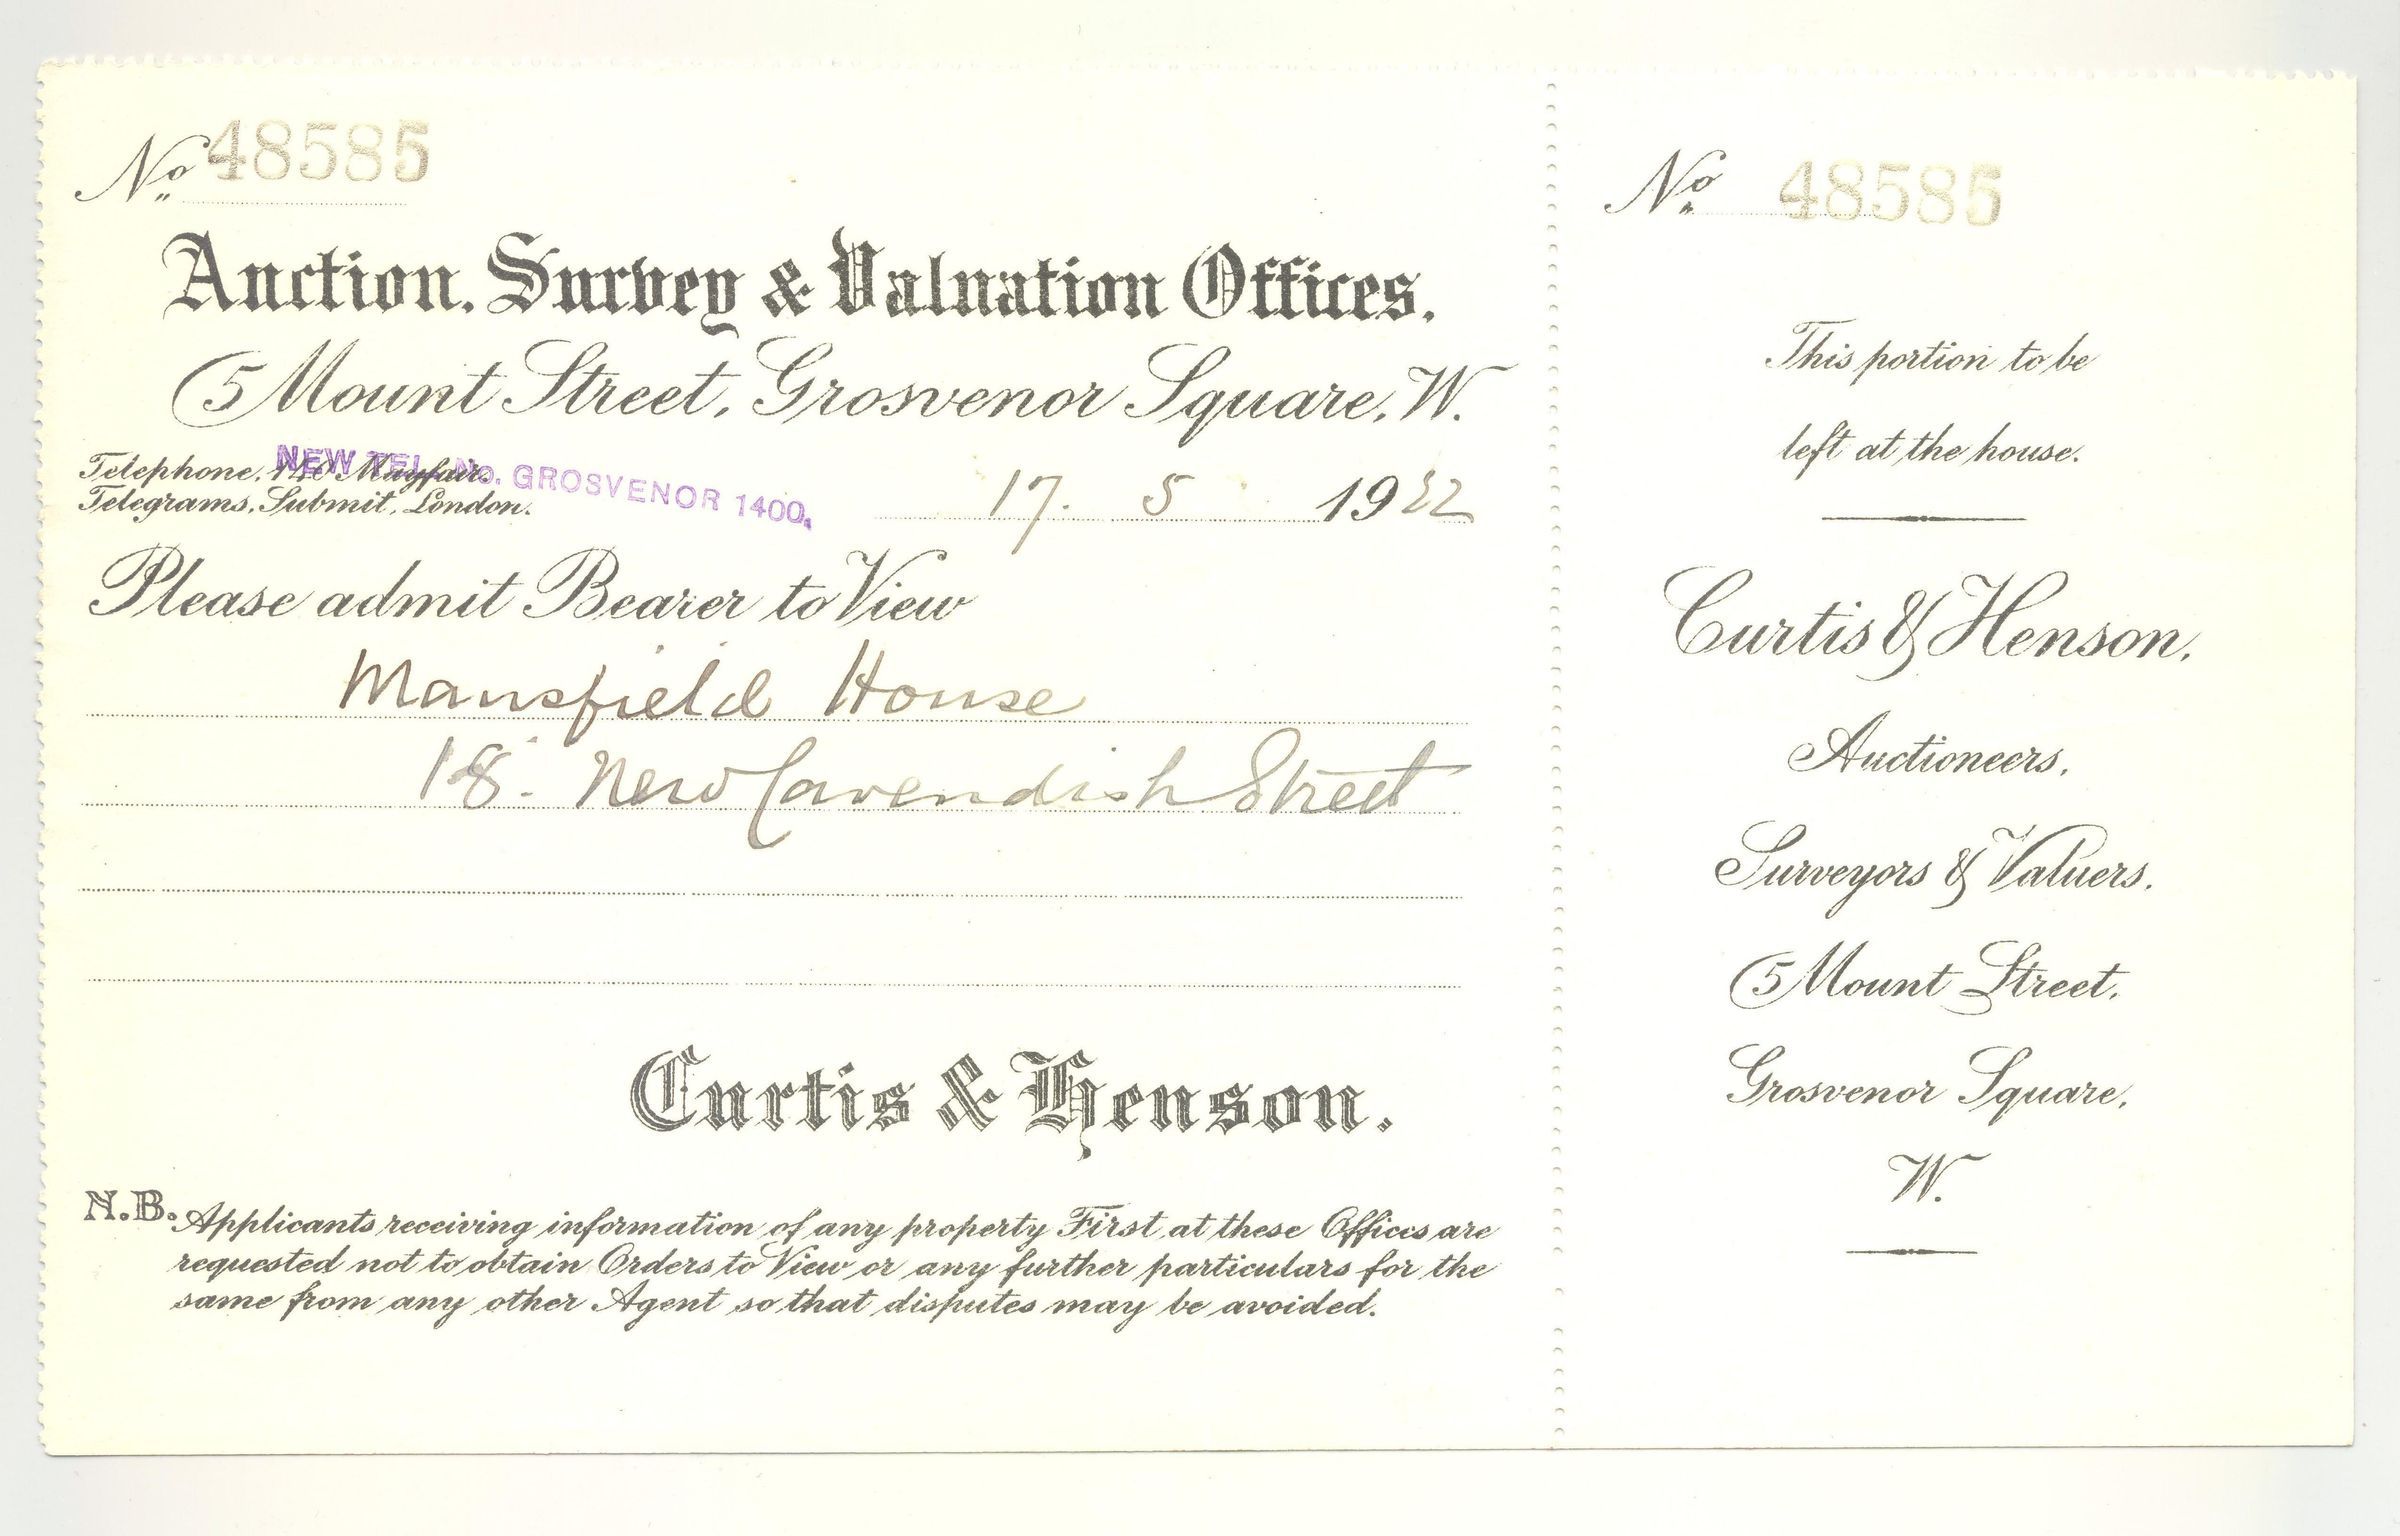 No 48585
Auction, Survey & Valuation Offices.
5 Mount Street, Grosvenor Square, W.
Telephone, Mayfair.
NEW TEL. No. GROSVENOR 1400.
Telegrams, Submit, London.
17. 5 1922
Please admit Bearer to View
Mansfield House
18. New Cavendish Street
Curtis & Henson.
N.B. Applicants receiving information of any property First at these Offices are
requested not to obtain Orders to View or any further particulars for the
same from any other Agent so that disputes may be avoided.
No 48585
This portion to be
left at the house.
Curtis & Henson,
Auctioneers,
Surveyors & Valuers.
5 Mount Street,
Grosvenor Square,
W.